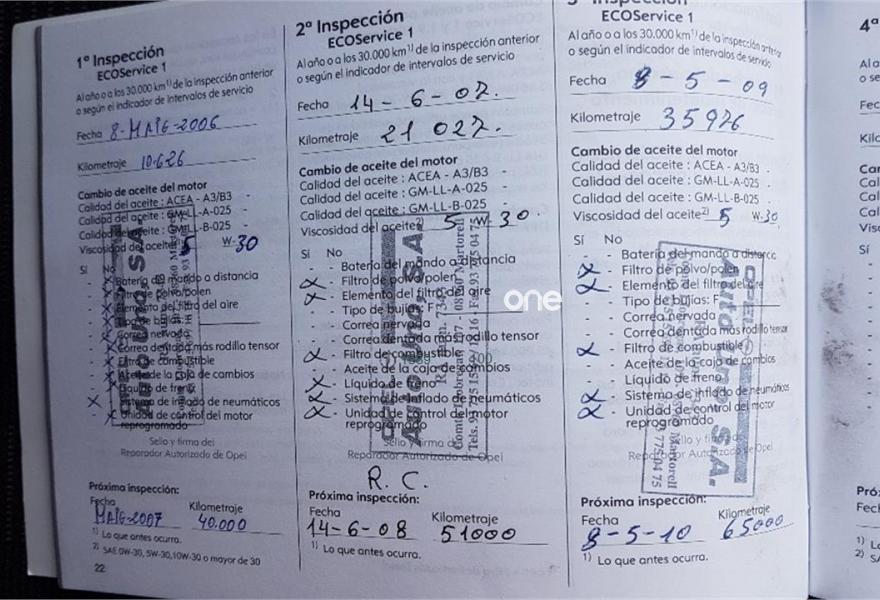 1ª Inspección
ECOService 1
Al año o a los 30.000 km 1) de la inspección anterior
o según el indicador de intervalos de servicio
Fecha 8-MAIG-2006
Kilometraje 10.626
Cambio de aceite del motor
Calidad del aceite : ACEA - A3/B3 -
Calidad del aceite : GM-LL-A-025 -
Calidad del aceite : GM-LL-B-025 -
Viscosidad del aceite 5 W-30
Sí No
Batería del mando a distancia
Filtro de polvo/polen
Elemento del filtro del aire
Tipo de bujías: F
Correa nervada
Correa dentada más rodillo tensor
Filtro de combustible
Aceite de la caja de cambios
Líquido de freno
Sistema de inflado de neumáticos
Unidad de control del motor
reprogramado
Sello y firma del
Reparador Autorizado de Opel
Próxima inspección:
Fecha Kilometraje
MAIG-2007 40.000
1) Lo que antes ocurra.
2) SAE 0W-30, 5W-30,10W-30 o mayor de 30
22
2ª Inspección
ECOService 1
Al año o a los 30.000 km 1) de la inspección anterior
o según el indicador de intervalos de servicio
Fecha 14-6-07.
Kilometraje 21 027.
Cambio de aceite del motor
Calidad del aceite : ACEA - A3/B3 -
Calidad del aceite : GM-LL-A-025 -
Calidad del aceite : GM-LL-B-025 -
Viscosidad del aceite 2) 5 W-30.
Sí No
Batería del mando a distancia
Filtro de polvo/polen
Elemento del filtro del aire
Tipo de bujías: F
Correa nervada
Correa dentada más rodillo tensor
Filtro de combustible
Aceite de la caja de cambios
Líquido de freno
Sistema de inflado de neumáticos
Unidad de control del motor
reprogramado
Sello y firma del
Reparador Autorizado de Opel
OPEL
Auto Uno S.A.
Martorell
R.C.
Próxima inspección:
Fecha Kilometraje
14-6-08 51000
1) Lo que antes ocurra.
one
Inspección
ECOService 1
Al año o a los 30.000 km 1) de la inspección anterior
o según el indicador de intervalos de servicio
Fecha 8-5-09
Kilometraje 35976
Cambio de aceite del motor
Calidad del aceite : ACEA - A3/B3 -
Calidad del aceite : GM-LL-A-025 -
Calidad del aceite : GM-LL-B-025 -
Viscosidad del aceite 2) 5 W-30
Sí No
Batería del mando a distancia
Filtro de polvo/polen
Elemento del filtro del aire
Tipo de bujías: F
Correa nervada
Correa dentada más rodillo tensor
Filtro de combustible
Aceite de la caja de cambios
Líquido de freno
Sistema de inflado de neumáticos
Unidad de control del motor
reprogramado
OPEL
Auto Uno S.A.
Martorell
Próxima inspección:
Fecha Kilometraje
8-5-10 65000
1) Lo que antes ocurra.
4ª